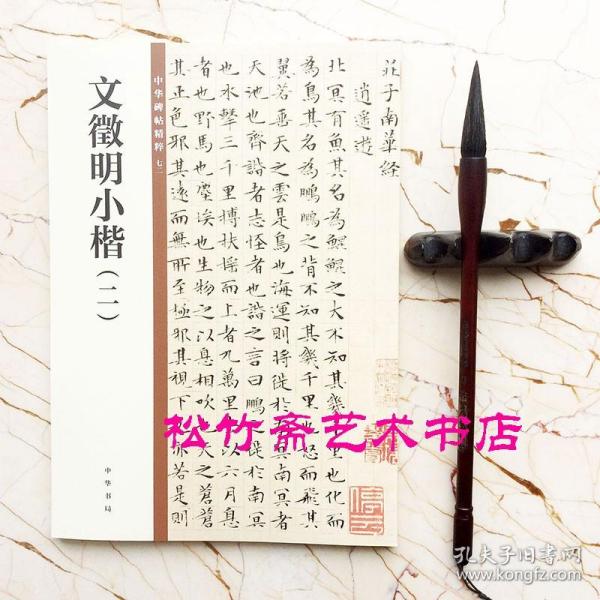 文徵明小楷（二）
中华书局
中华碑帖精粹 七二
莊子南華經
逍遙遊
北冥有魚其名為鯤鯤之大不知其幾里也化而
為鳥其名為鵬鵬之背不知其幾千里也怒而飛其
翼若垂天之雲是鳥也海運則將徙於冥南冥者
天池也齊諧者志怪者也諧之言曰鵬徙於南冥
也水擊三千里摶扶搖而上者九萬里以六月息
者也野馬也塵埃也生物之以息相吹天之蒼蒼
其正色邪其遠而無所至極邪其視下亦若是則
松竹斋艺术书店
孔夫子旧书网
www.kongfz.com